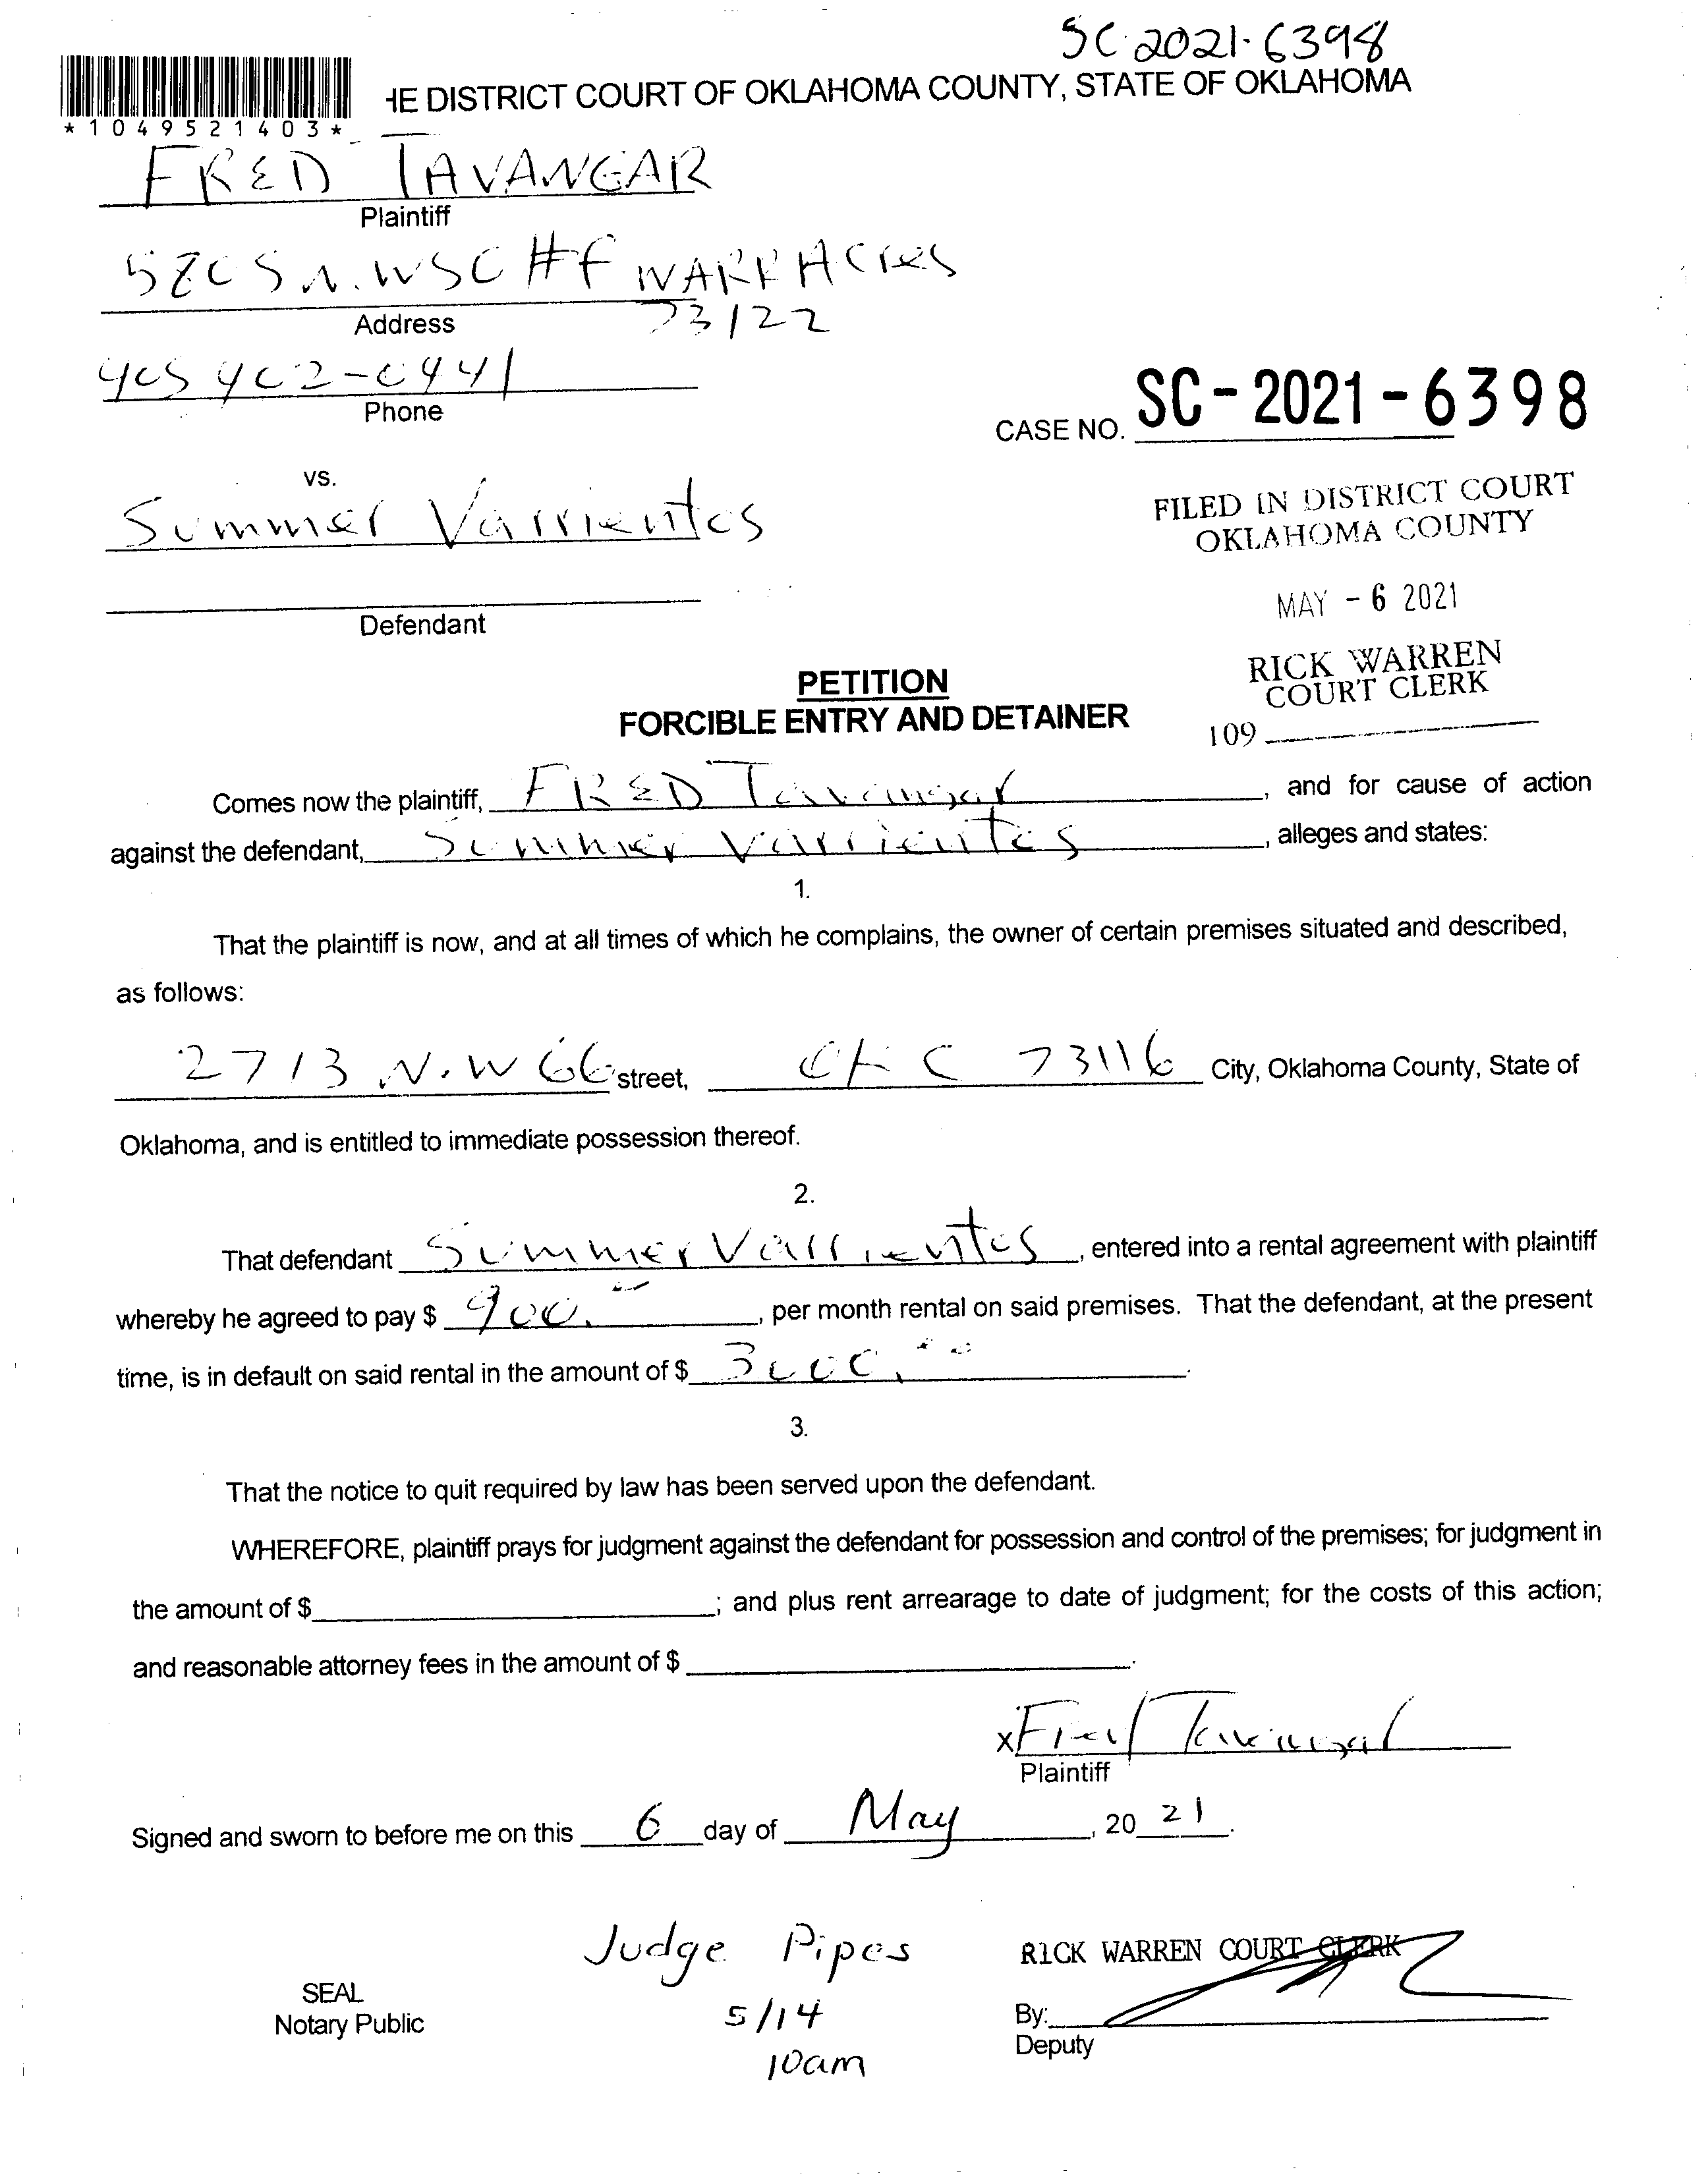 SC-2021-6398
HE DISTRICT COURT OF OKLAHOMA COUNTY, STATE OF OKLAHOMA
*1049521403*
FRED TAVANGAR
Plaintiff
N.W 50 #F WARR ACRES
Address 73122
405 402-0441
Phone
CASE NO. SC-2021-6398
vs.
Summer Varrientos
FILED IN DISTRICT COURT
OKLAHOMA COUNTY
MAY - 6 2021
Defendant
RICK WARREN
COURT CLERK
109
PETITION
FORCIBLE ENTRY AND DETAINER
Comes now the plaintiff, FRED Tavangar, and for cause of action
against the defendant, Summer Varrientos, alleges and states:
1.
That the plaintiff is now, and at all times of which he complains, the owner of certain premises situated and described,
as follows:
2713 N.W 66 street, OKC 73116 City, Oklahoma County, State of
Oklahoma, and is entitled to immediate possession thereof.
2.
That defendant Summer Varrientos, entered into a rental agreement with plaintiff
whereby he agreed to pay $ 900.—, per month rental on said premises. That the defendant, at the present
time, is in default on said rental in the amount of $ 3000.00.
3.
That the notice to quit required by law has been served upon the defendant.
WHEREFORE, plaintiff prays for judgment against the defendant for possession and control of the premises; for judgment in
the amount of $; and plus rent arrearage to date of judgment; for the costs of this action;
and reasonable attorney fees in the amount of $.
x Fred Tavangar
Plaintiff
Signed and sworn to before me on this 6 day of May, 20 21.
Judge Pipes
RICK WARREN COURT CLERK
SEAL
Notary Public
5/14
By:
Deputy
10am